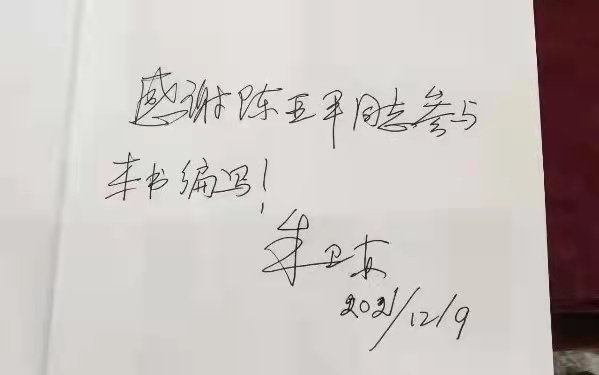 感谢陈亚军同志参与
本书编写!
朱卫东
2021/12/9